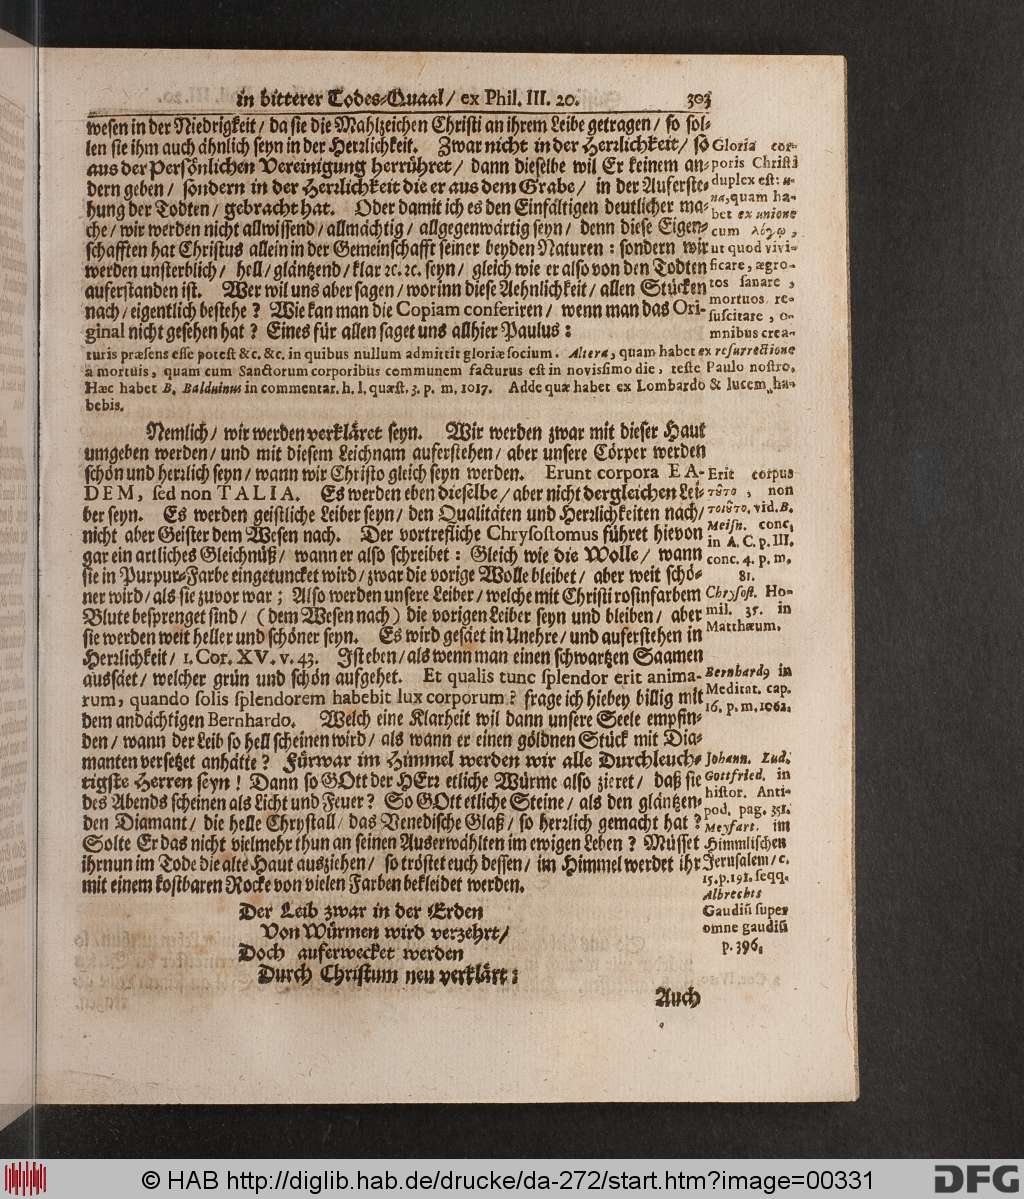 in bitterer Todes-Quaal/ ex Phil. III. 20. 303
wesen in der Niedrigkeit/ da sie die Mahlzeichen Christi an ihrem Leibe getragen/ so sol-
len sie ihm auch ähnlich seyn in der Herꝛlichkeit. Zwar nicht in der Herꝛlichkeit/ so
aus der Persönlichen Vereinigung herrühret/ dann dieselbe wil Er keinem an-
dern geben/ sondern in der Herꝛlichkeit die er aus dem Grabe/ in der Auferste-
hung der Todten/ gebracht hat. Oder damit ich es den Einfältigen deutlicher ma-
che/ wir werden nicht allwissend/ allmächtig/ allgegenwärtig seyn/ denn diese Eigen-
schafften hat Christus allein in der Gemeinschafft seiner beyden Naturen: sondern wir
werden unsterblich/ hell/ gläntzend/ klar ꝛc. ꝛc. seyn/ gleich wie er also von den Todten
auferstanden ist. Wer wil uns aber sagen/ worinn diese Aehnlichkeit/ allen Stücken
nach/ eigentlich bestehe? Wie kan man die Copiam conferiren/ wenn man das Ori-
ginal nicht gesehen hat? Eines für allen saget uns allhier Paulus:
Gloria cor-
poris Christi
duplex est: u-
na, quam ha-
bet ex unione
cum λόγῳ,
ut quod vivi-
ficare, ægro-
tos sanare,
mortuos re-
suscitare, o-
mnibus crea-
turis præsens esse potest &c. &c. in quibus nullum admittit gloriæ socium. Altera, quam habet ex resurrectione
a mortuis, quam cum Sanctorum corporibus communem facturus est in novissimo die, teste Paulo nostro.
Hæc habet B. Balduinus in commentar. h. l. quæst. 3. p. m. 1017. Adde quæ habet ex Lombardo & lucem ha-
bebis.
Nemlich/ wir werden verkläret seyn. Wir werden zwar mit dieser Haut
umgeben werden/ und mit diesem Leichnam auferstehen/ aber unsere Cörper werden
schön und herꝛlich seyn/ wann wir Christo gleich seyn werden. Erunt corpora EA-
DEM, sed non TALIA. Es werden eben dieselbe/ aber nicht dergleichen Lei-
ber seyn. Es werden geistliche Leiber seyn/ den Qualitäten und Herꝛlichkeiten nach/
nicht aber Geister dem Wesen nach. Der vortrefliche Chrysostomus führet hievon
gar ein artliches Gleichnüß/ wann er also schreibet: Gleich wie die Wolle/ wann
sie in Purpur-Farbe eingetuncket wird/ zwar die vorige Wolle bleibet/ aber weit schö-
ner wird/ als sie zuvor war; Also werden unsere Leiber/ welche mit Christi rosinfarbem
Blute besprenget sind/ (dem Wesen nach) die vorigen Leiber seyn und bleiben/ aber
sie werden weit heller und schöner seyn. Es wird gesäet in Unehre/ und auferstehen in
Herꝛlichkeit/ 1. Cor. XV. v. 43. Ist eben/ als wenn man einen schwartzen Saamen
aussäet/ welcher grün und schön aufgehet. Et qualis tunc splendor erit anima-
rum, quando solis splendorem habebit lux corporum? frage ich hiebey billig mit
dem andächtigen Bernhardo. Welch eine Klarheit wil dann unsere Seele empfin-
den/ wann der Leib so hell scheinen wird/ als wann er einen göldnen Stück mit Dia-
manten versetzet anhätte? Fürwar im Himmel werden wir alle Durchleuch-
tigste Herren seyn! Dann so GOtt der HErꝛ etliche Würme also zieret/ daß sie
des Abends scheinen als Licht und Feuer? So GOtt etliche Steine/ als den gläntzen-
den Diamant/ die helle Chrystall/ das Venedische Glaß/ so herꝛlich gemacht hat?
Solte Er das nicht vielmehr thun an seinen Auserwählten im ewigen Leben? Müsset
ihr nun im Tode die alte Haut ausziehen/ so tröstet euch dessen/ im Himmel werdet ihr
mit einem kostbaren Rocke von vielen Farben bekleidet werden.
Erit corpus
τοῦτο, non
τοιοῦτο. vid. B.
Meisn. conc.
in A. C. p. III.
conc. 4. p. m.
81.
Chrysost. Ho-
mil. 35. in
Matthæum.
Bernhardꝰ in
Meditat. cap.
16. p. m. 1062.
Johann. Lud.
Gottfried. in
histor. Anti-
pod. pag. 351.
Meyfart. im
Himmlischen
Jerusalem/ c.
15. p. 191. seqq.
Albrechts
Gaudiū super
omne gaudiū
p. 396.
Der Leib zwar in der Erden
Von Würmen wird verzehrt/
Doch auferwecket werden
Durch Christum neu verklärt:
Auch
© HAB http://diglib.hab.de/drucke/da-272/start.htm?image=00331
DFG